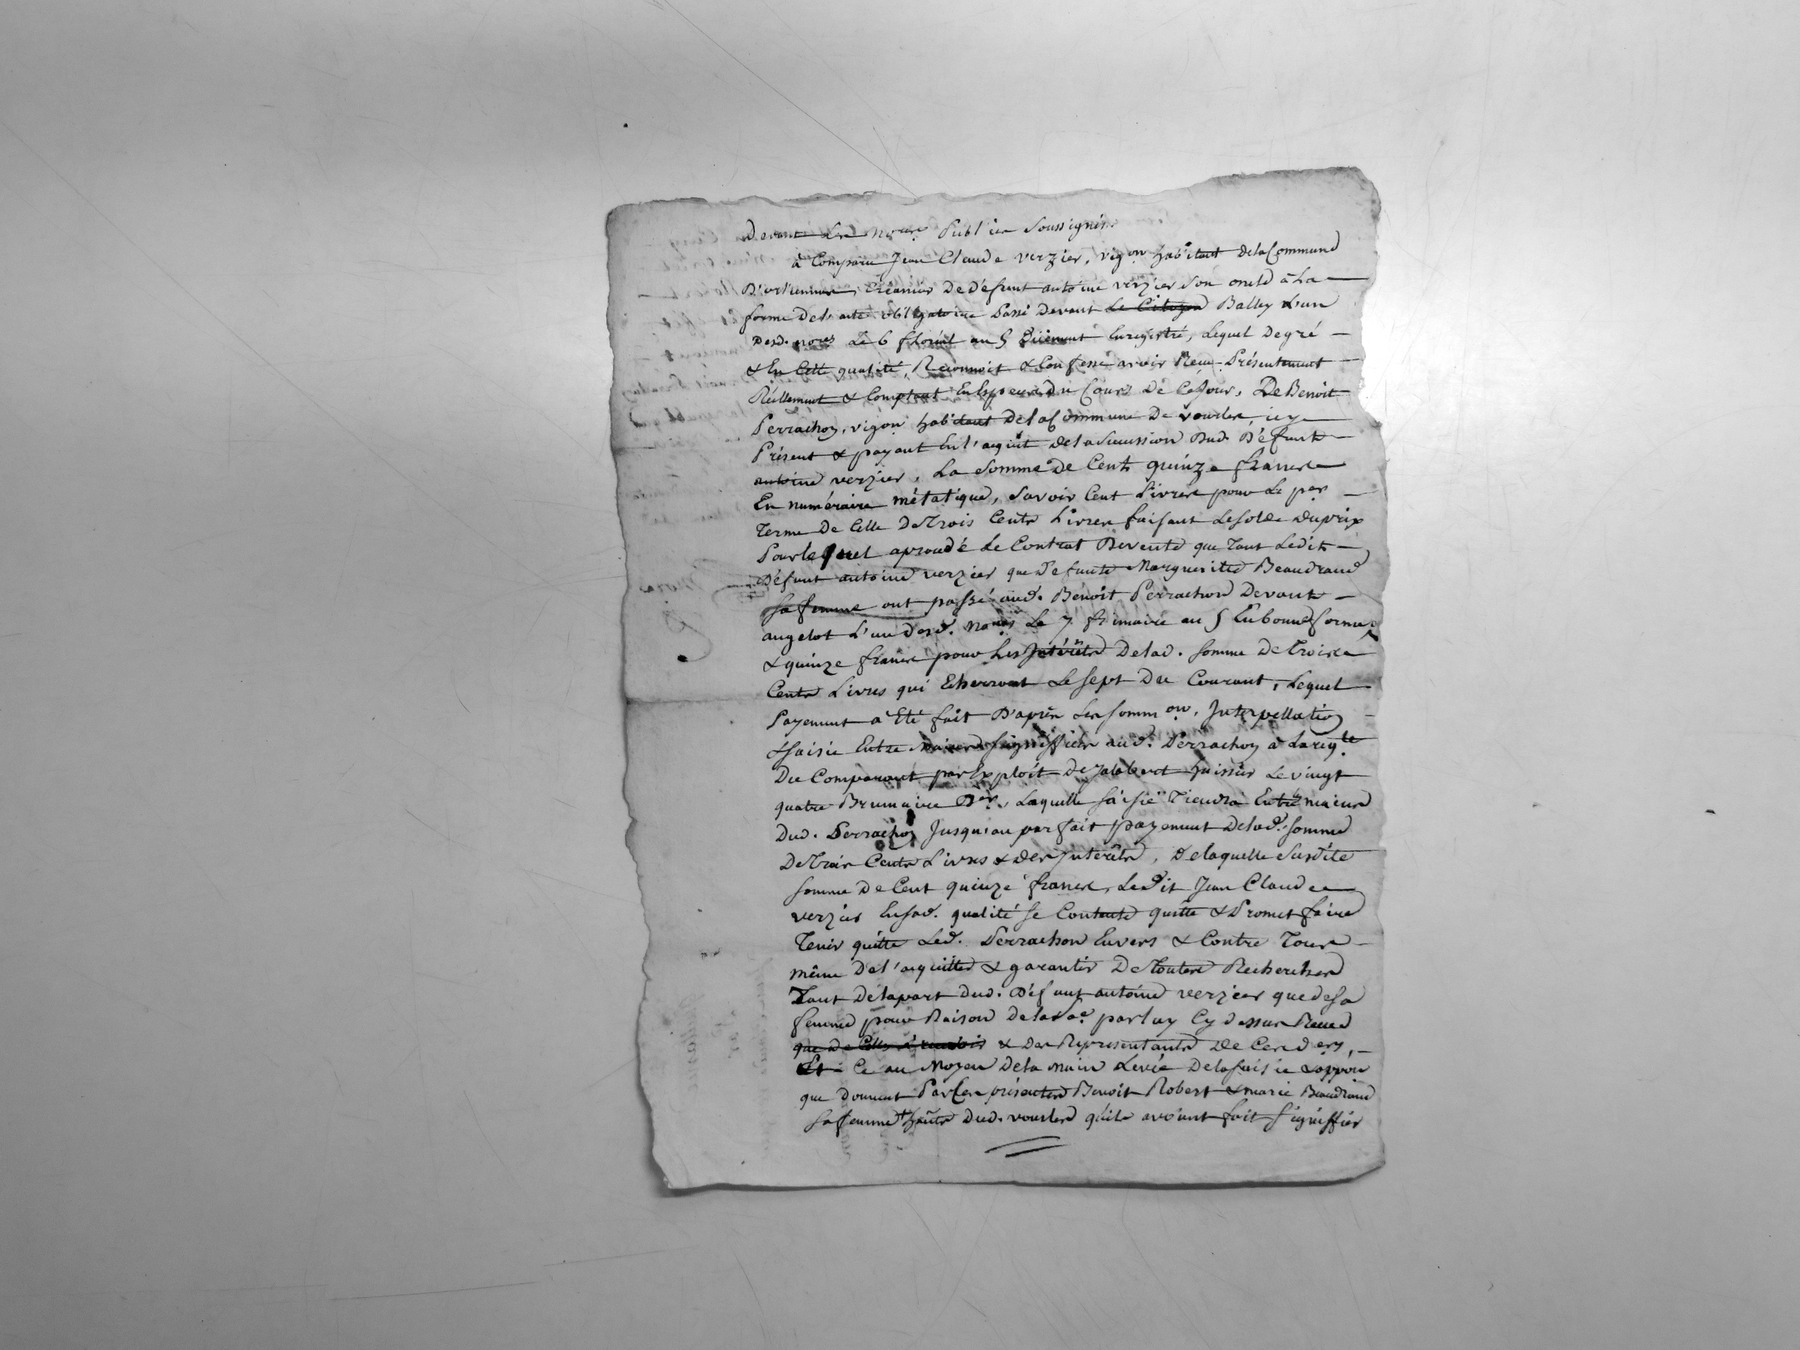 Devant Les no.res Publics Soussignés
à Comparu Jean Claude verzier, vigon habitant dela Commune
D'orliennas, Créancier De déffunt antoine verzier Son oncle à La
forme del'acte obligatoire Passé Devant Le Citoyen Balley L'un
Desd. no.res Le 6 floréal an 5 Enregistré, Lequel De gré
& En Cette qualité, Reconnoit & Confesse avoir Reçu Présentement
Réellement & Comptant En Espece du Cours De Ce Jour, De Benoit
Perrachon, vigon habitant dela Commune De vourles, icy
Présent & payant En l'aquit dela Sucession Dud. Défunt
antoine verzier, La Somme De Cent quinze francs
En numéraire métalique, Savoir Cent Livres pour Le p.er
Terme De Celle De Trois Cents Livres faisant Le Solde Du prix
Pour lequel a procédé Le Contrat De vente que Tant Ledit
Défunt antoine verzier que défunte Margueritte Beaudrand
Sa femme ont passé aud. Benoit Perrachon Devant
angelot L'un Desd. No.res Le 7 frimaire an 5 En bonne forme,
& quinze francs pour Les Intérêts De lad. Somme De Trois
Cents Livres qui Echerront Le Sept Du Courant, Lequel
Payement a Eté fait D'après Les Somm.on, Interpellation
& Saisie Entre Mains Signiffiés aud. Perrachon à La req.te
Du Comparant par Exploit De Jalabert huissier Le vingt
quatre Brumaire D.er, Laquelle Saisie Tiendra Entre mains
Dud. Perrachon Jusqu'au parfait payement De lad. Somme
De Trois Cents Livres & Des Intérêts, De laquelle Susdite
Somme De Cent quinze francs, Ledit Jean Claude
verzier En Sad. qualité Se Contente quitte & Promet faire
Tenir quitte Led. Perrachon Envers & Contre Tous
même De l'aquitter & garantir De Toutes Recherches
Tant De la part Dud. Défunt antoine verzier que de Sa
femme pour Raison De lad. S.e par luy Cy dessus Recue
que De Celle à recevoir & Des Représentants De Ces D.ers,
Et Ce au Moyen De la Main Levée De la Saisie & oppon
que Donnent Par Ces présentes Benoit Robert & marie Beaudrand
Sa femme hants Dud. vourles qu'ils avoient fait Signiffier